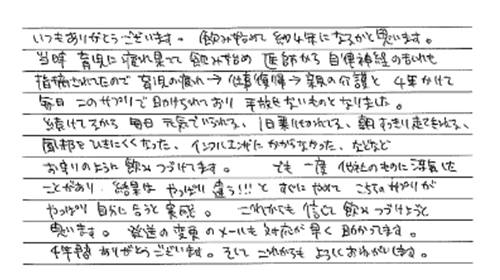 いつもありがとうございます。飲み始めて約4年になるかと思います。
当時 育児に疲れ果てて飲み始め 医師から自律神経の乱れも
指摘されてたので 育児の疲れ→仕事復帰→親の介護と 4年かけて
毎日 このサプリで助けられており 手放せないものとなりました。
続けてるから 毎日 元気でいられる、1日乗り切れてる、朝すっきり起きれる、
風邪をひきにくくなった、インフルエンザにかからなかった、などなど
お守りのように 飲みつづけてます。 でも 一度 他社のものに浮気した
ことがあり 結果は やっぱり違う!!! と すぐにやめて こちらのサプリが
やっぱり 自分に合うと実感。 これからも 信じて 飲みつづけようと
思います。 発送の変更のメールも 対応が早く 助かってます。
4年間 ありがとうございます。そして これからも よろしくおねがいします。